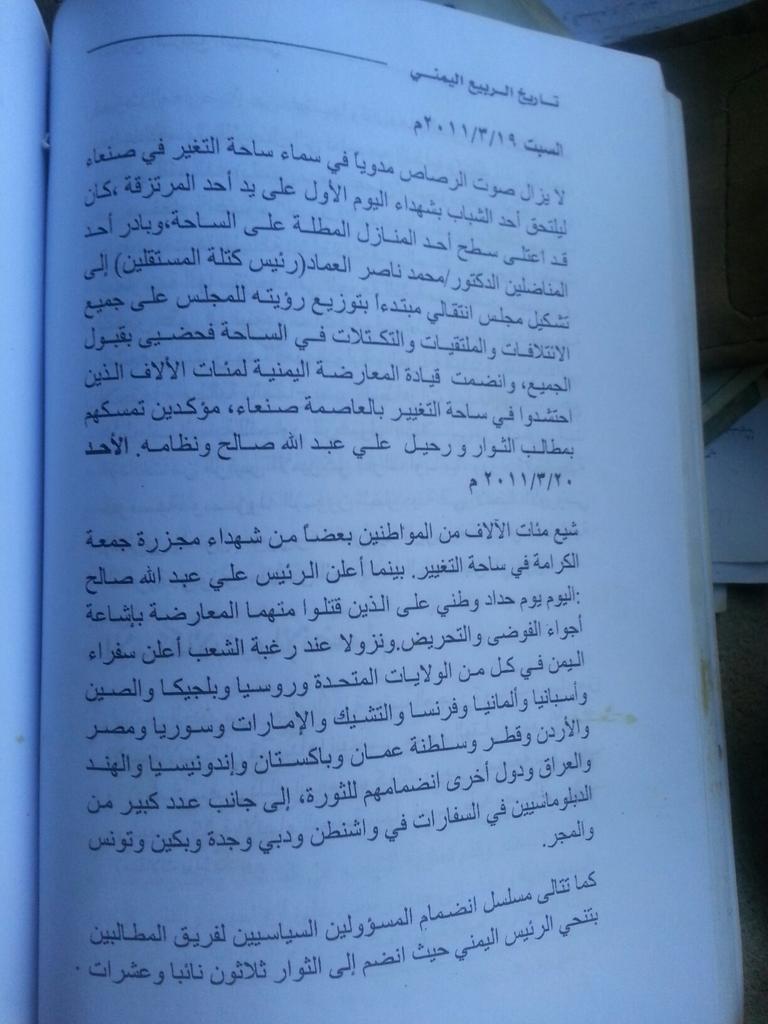 تاريخ الربيع اليمني
السبت ٢٠١١/٣/١٩م
لا يزال صوت الرصاص مدوياً في سماء ساحة التغير في صنعاء
ليلتحق أحد الشباب بشهداء اليوم الأول على يد أحد المرتزقة ،كان
قد اعتلى سطح أحد المنازل المطلة على الساحة،وبادر أحد
المناضلين الدكتور/محمد ناصر العماد(رئيس كتلة المستقلين) إلى
تشكيل مجلس انتقالي مبتدءا بتوزيع رؤيته للمجلس على جميع
الائتلافات والملتقيات والتكتلات في الساحة فحضيي بقبول
الجميع، وانضمت قيادة المعارضة اليمنية لمئات الألاف الذين
احتشدوا في ساحة التغيير بالعاصمة صنعاء، مؤكدين تمسكهم
بمطالب الثوار و رحيل علي عبد الله صالح ونظامه. الأحد
٢٠١١/٣/٢٠ م
شيع مئات الآلاف من المواطنين بعضاً من شهداء مجزرة جمعة
الكرامة في ساحة التغيير. بينما أعلن الرئيس علي عبد الله صالح
:اليوم يوم حداد وطني على الذين قتلوا متهما المعارضة بإشاعة
أجواء الفوضى والتحريض.ونزولا عند رغبة الشعب أعلن سفراء
اليمن في كل من الولايات المتحدة وروسيا وبلجيكا والصين
وأسبانيا وألمانيا وفرنسا والتشيك والإمارات وسوريا ومصر
والأردن وقطر وسلطنة عمان وباكستان وإندونيسيا والهند
والعراق ودول أخرى انضمامهم للثورة، إلى جانب عدد كبير من
الدبلوماسيين في السفارات في واشنطن ودبي وجدة وبكين وتونس
والمجر.
كما تتالى مسلسل انضمام المسؤولين السياسيين لفريق المطالبين
بتنحي الرئيس اليمني حيث انضم إلى الثوار ثلاثون نائبا وعشرات